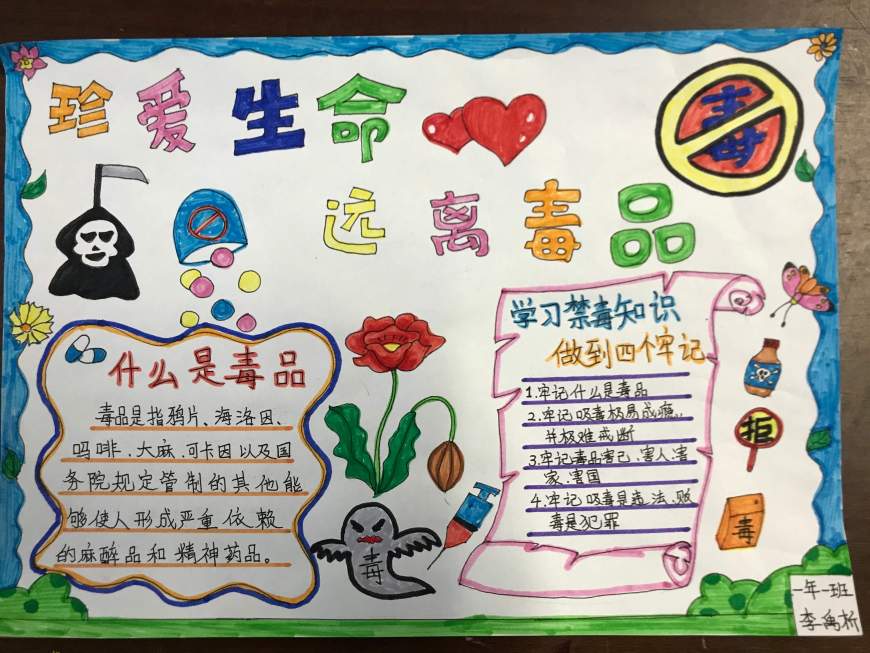 珍爱生命
远离毒品
毒
什么是毒品
毒品是指鸦片、海洛因、
吗啡、大麻、可卡因以及国
务院规定管制的其他能
够使人形成严重依赖
的麻醉品和精神药品。
学习禁毒知识
做到四个牢记
1.牢记什么是毒品
2.牢记吸毒极易成瘾,
并极难戒断
3.牢记毒品害己、害人、害
家、害国
4.牢记吸毒是违法、贩
毒是犯罪
毒
拒
毒
一年一班
李禹析